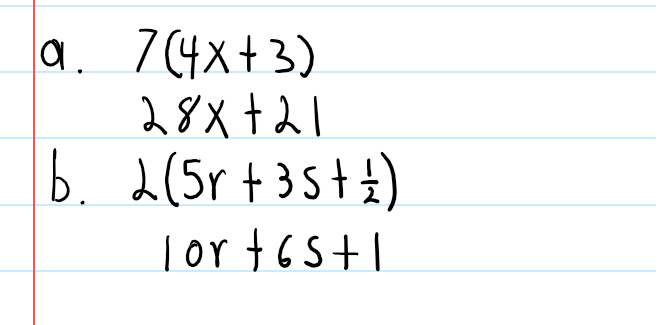 a. 7(4x+3)
28x+21
b. 2(5r+3s+½)
10r+6s+1